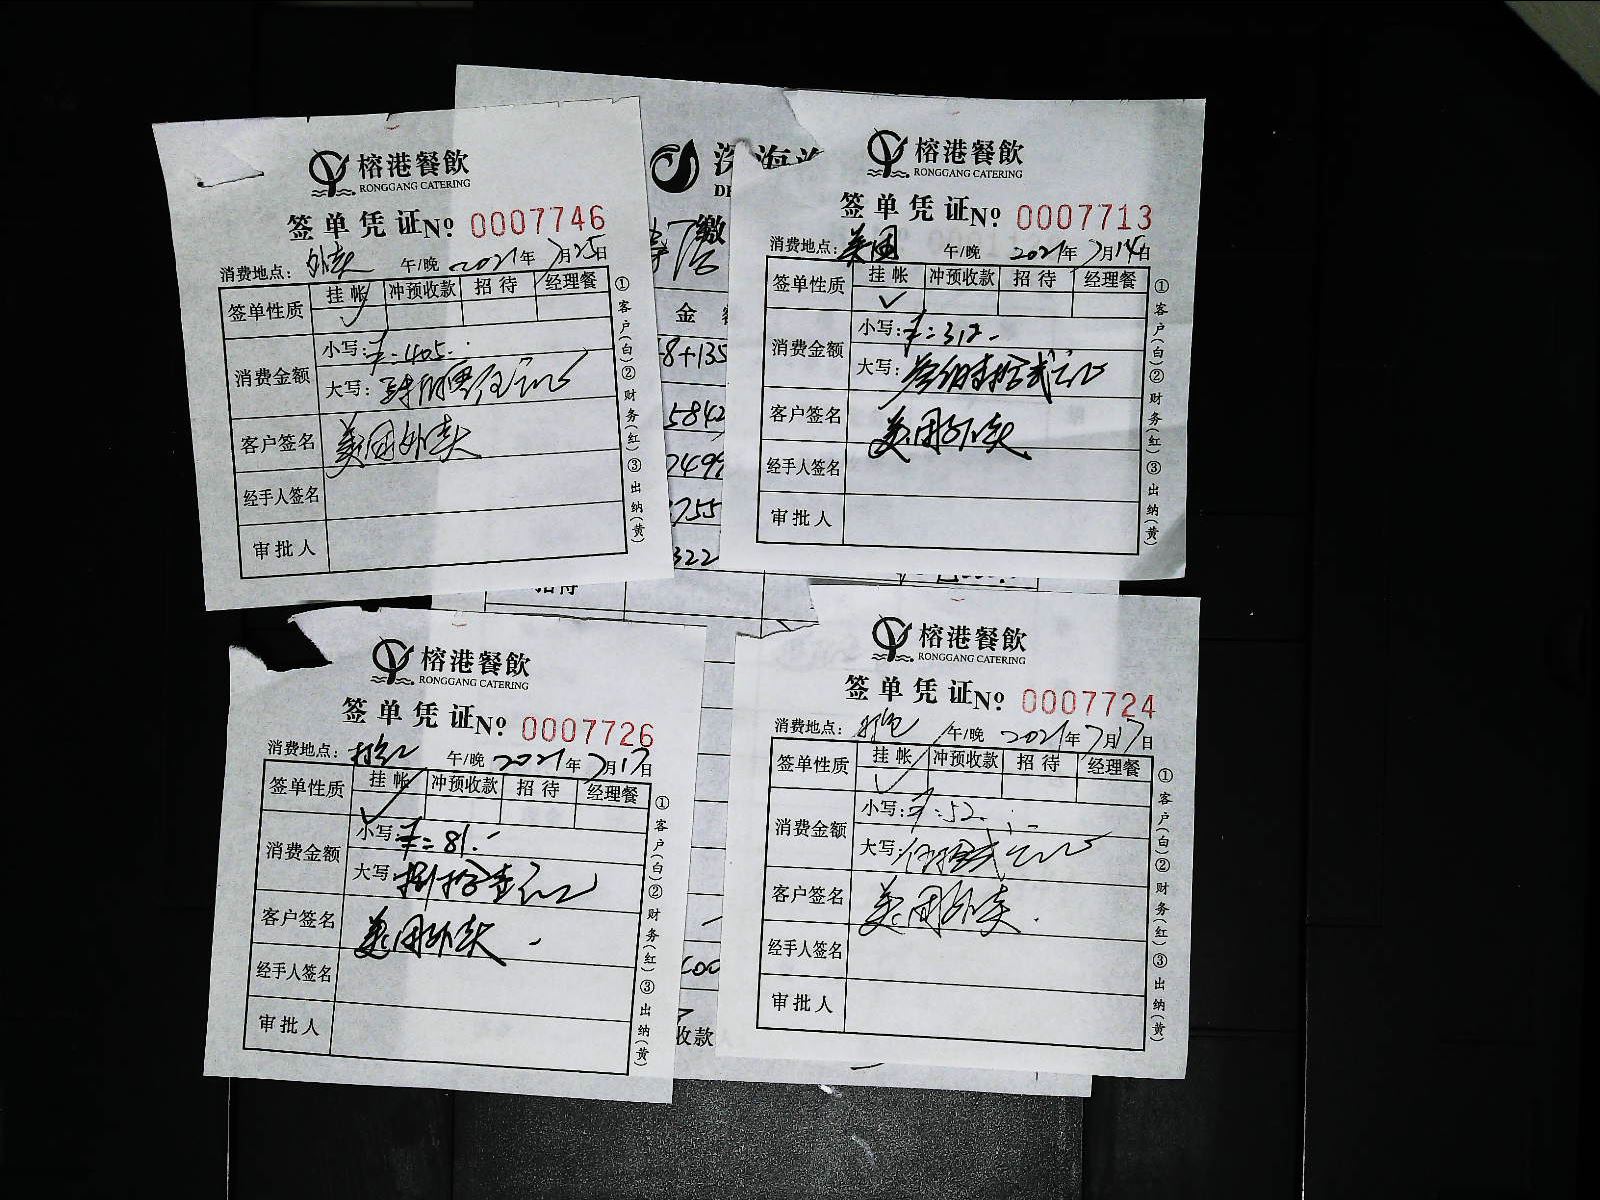 榕港餐飲
RONGGANG CATERING
签单凭证 No 0007746
消费地点: 外卖 午/晚 2021年7月25日
签单性质 挂帐 冲预收款 招待 经理餐
✓
消费金额 小写: ¥:405.-
大写: 肆佰零伍元正
客户签名 美团外卖
经手人签名
审批人
①客户(白)②财务(红)③出纳(黄)
榕港餐飲
RONGGANG CATERING
签单凭证 No 0007713
消费地点: 美团 午/晚 2021年7月14日
签单性质 挂帐 冲预收款 招待 经理餐
✓
消费金额 小写: ¥:312.-
大写: 叁佰壹拾贰元正
客户签名 美团外卖
经手人签名
审批人
①客户(白)②财务(红)③出纳(黄)
海
缴
金
8+135
5842
2499
755
322
招待
收款
榕港餐飲
RONGGANG CATERING
签单凭证 No 0007726
消费地点: 午/晚 2021年7月17日
签单性质 挂帐 冲预收款 招待 经理餐
✓
消费金额 小写: ¥:81.-
大写: 捌拾壹元正
客户签名 美团外卖
经手人签名
审批人
①客户(白)②财务(红)③出纳(黄)
榕港餐飲
RONGGANG CATERING
签单凭证 No 0007724
消费地点: 打包 午/晚 2021年7月17日
签单性质 挂帐 冲预收款 招待 经理餐
✓
消费金额 小写: ¥:52.-
大写: 伍拾贰元正
客户签名 美团外卖
经手人签名
审批人
①客户(白)②财务(红)③出纳(黄)